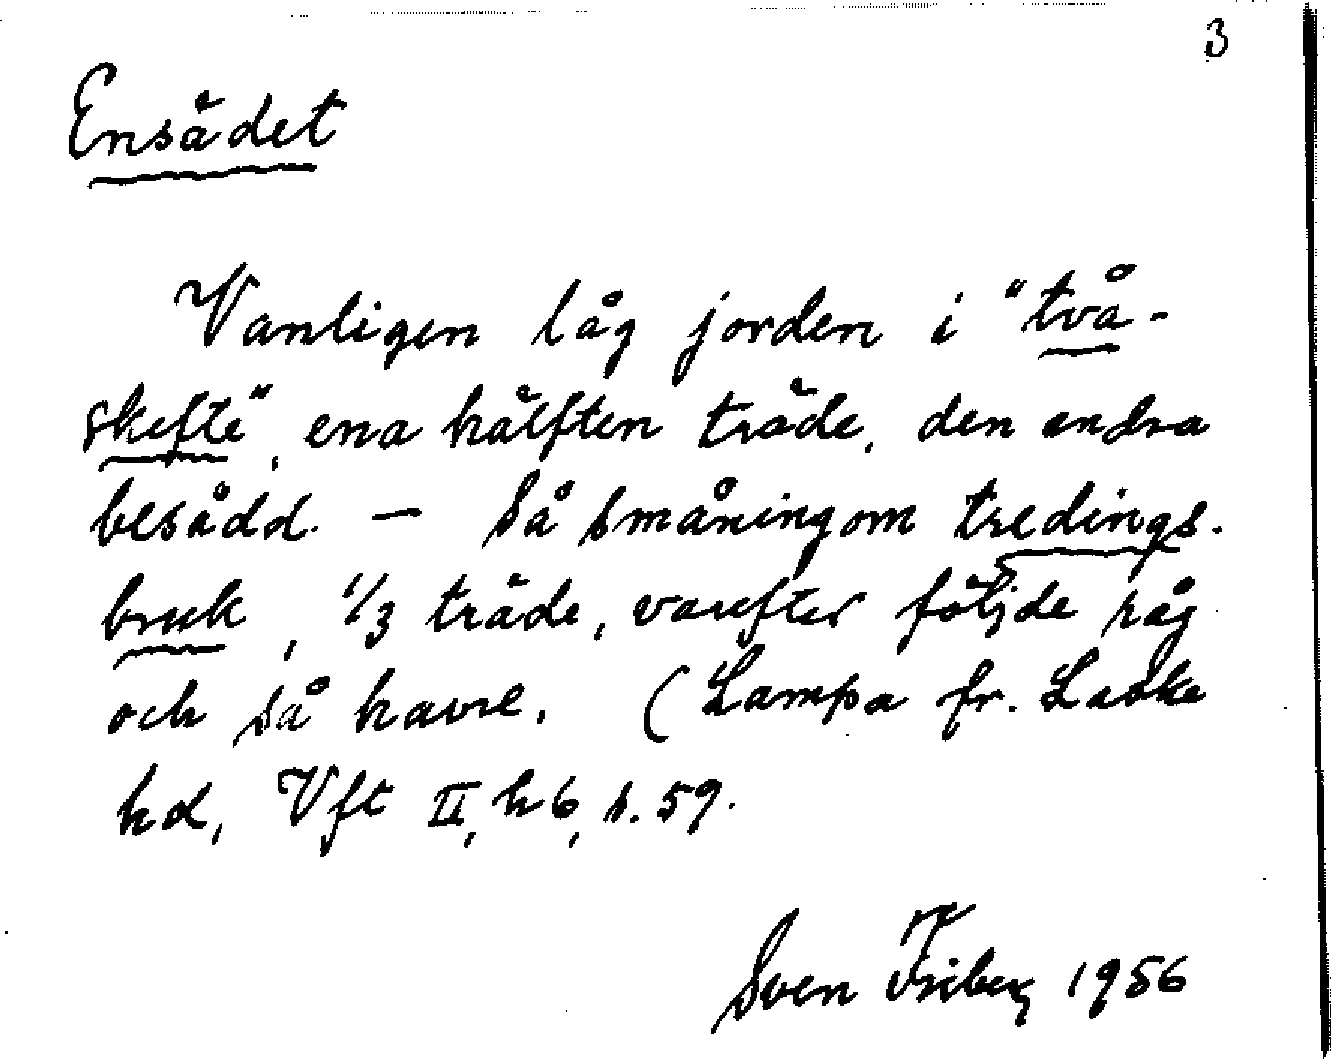 3
Ensädet
Vanligen låg jorden i "två-
skefte", ena hälften träde, den andra
besådd. — Så småningom tredings-
bruk, 1/3 träde, varefter följde råg
och så havre. (Lampa fr. Laske
hd, Vft II, h 6, s. 59.
Sven Friberg 1956